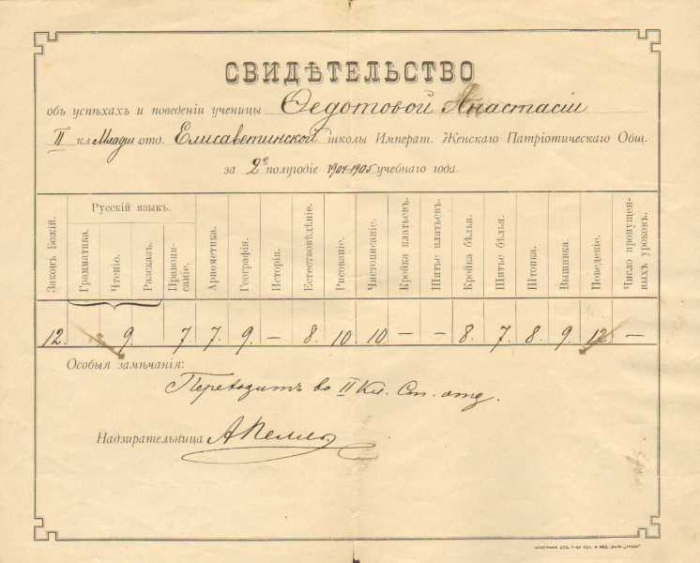 СВИДѢТЕЛЬСТВО
объ успѣхахъ и поведеніи ученицы Ѳедотовой Анастасіи
II кл Младш отд. Елисаветинской школы Императ. Женскаго Патріотическаго Общ.
за 2е полугодіе 1904-1905 учебнаго года.
Законъ Божій.
Русскій языкъ.
Грамматика.
Чтеніе.
Разсказъ.
Правопи-
саніе.
Ариѳметика.
Географія.
Исторія.
Естествовѣдѣніе.
Рисованіе.
Чистописаніе.
Кройка платьевъ.
Шитье платьевъ.
Кройка бѣлья.
Шитье бѣлья.
Штопка.
Вышивка.
Поведеніе.
Число пропущен-
ныхъ уроковъ.
12. 9. 7 7. 9. — 8. 10. 10 — — 8. 7. 8. 9 12. —
Особыя замѣчанія:
Переходитъ во II Кл. Ст. отд.
Надзирательница